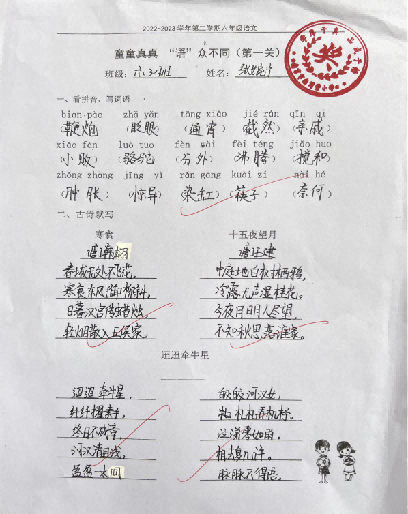 2022-2023学年第二学期六年级语文
童童真真 “语”众不同（第一关）
班级： 姓名：
奖
一、看拼音，写词语
biān pào zhǎ yǎn tōng xiāo jié rán qīn qi
（鞭炮）（眨眼）（通宵）（截然）（亲戚）
xiǎo fàn luò tuo fèn wài fèi téng jiǎo huo
（小贩）（骆驼）（分外）（沸腾）（搅和）
zhǒng zhàng jīng yà rǎn gāng kuài zi nài hé
（肿胀）（惊异）（染缸）（筷子）（奈何）
二、古诗默写
寒食 十五夜望月
唐 韩翃 唐 王建
春城无处不飞花， 中庭地白树栖鸦，
寒食东风御柳斜。 冷露无声湿桂花。
日暮汉宫传蜡烛， 今夜月明人尽望，
轻烟散入五侯家。 不知秋思落谁家。
迢迢牵牛星
迢迢牵牛星， 皎皎河汉女。
纤纤擢素手， 札札弄机杼。
终日不成章， 泣涕零如雨。
河汉清且浅， 相去复几许。
盈盈一水间， 脉脉不得语。